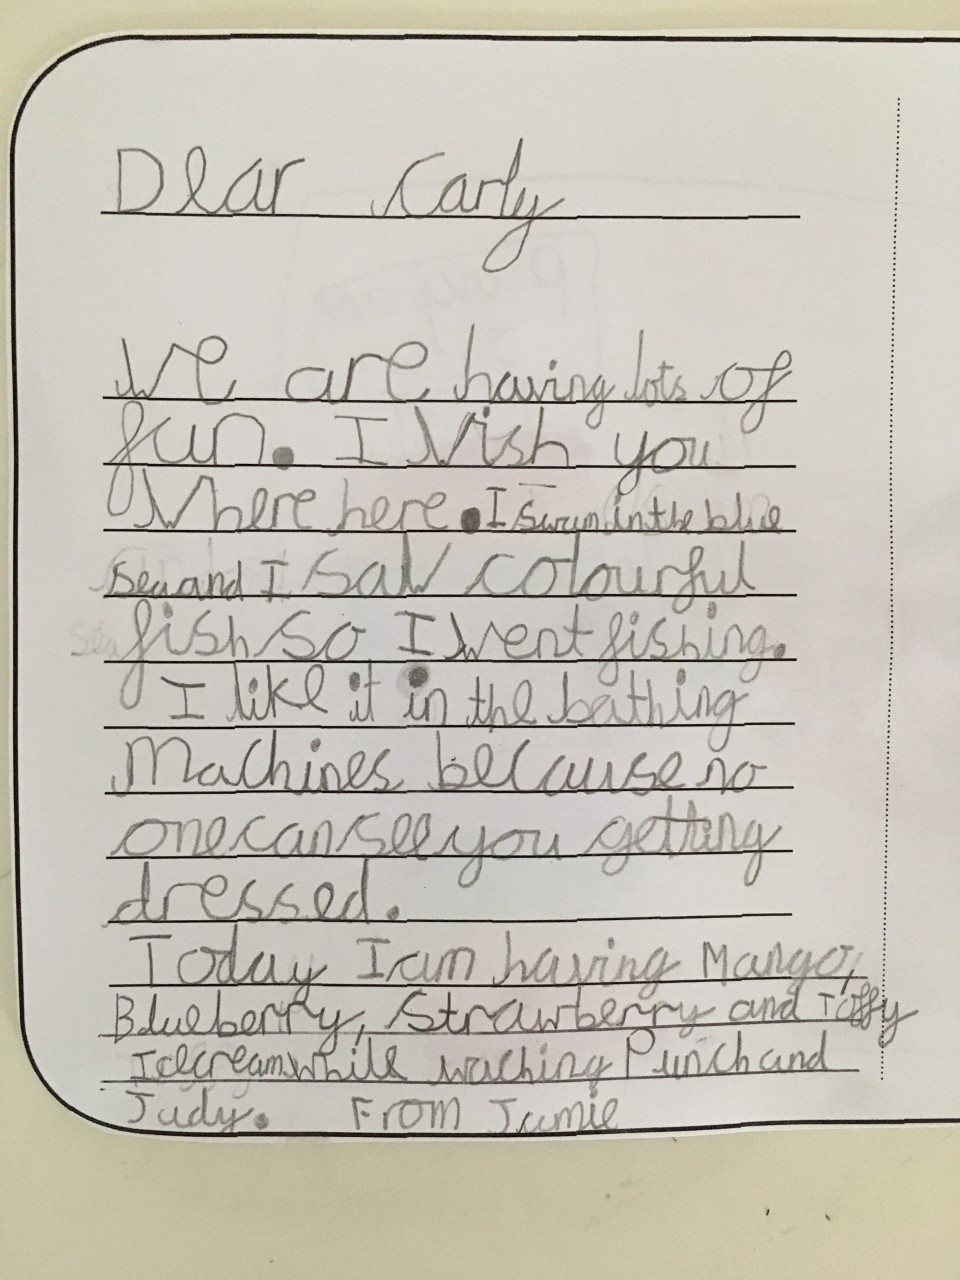 Dear Carly
We are having lots of
fun. I Wish you
Where here. I swum in the blue
sea and I saw colourful
fish so I went fishing.
I like it in the bathing
Machines because no
one can see you getting
dressed.
Today I am having Mango,
Blueberry, Strawberry and Toffy
Icecream while waching Punch and
Judy. From Jamie